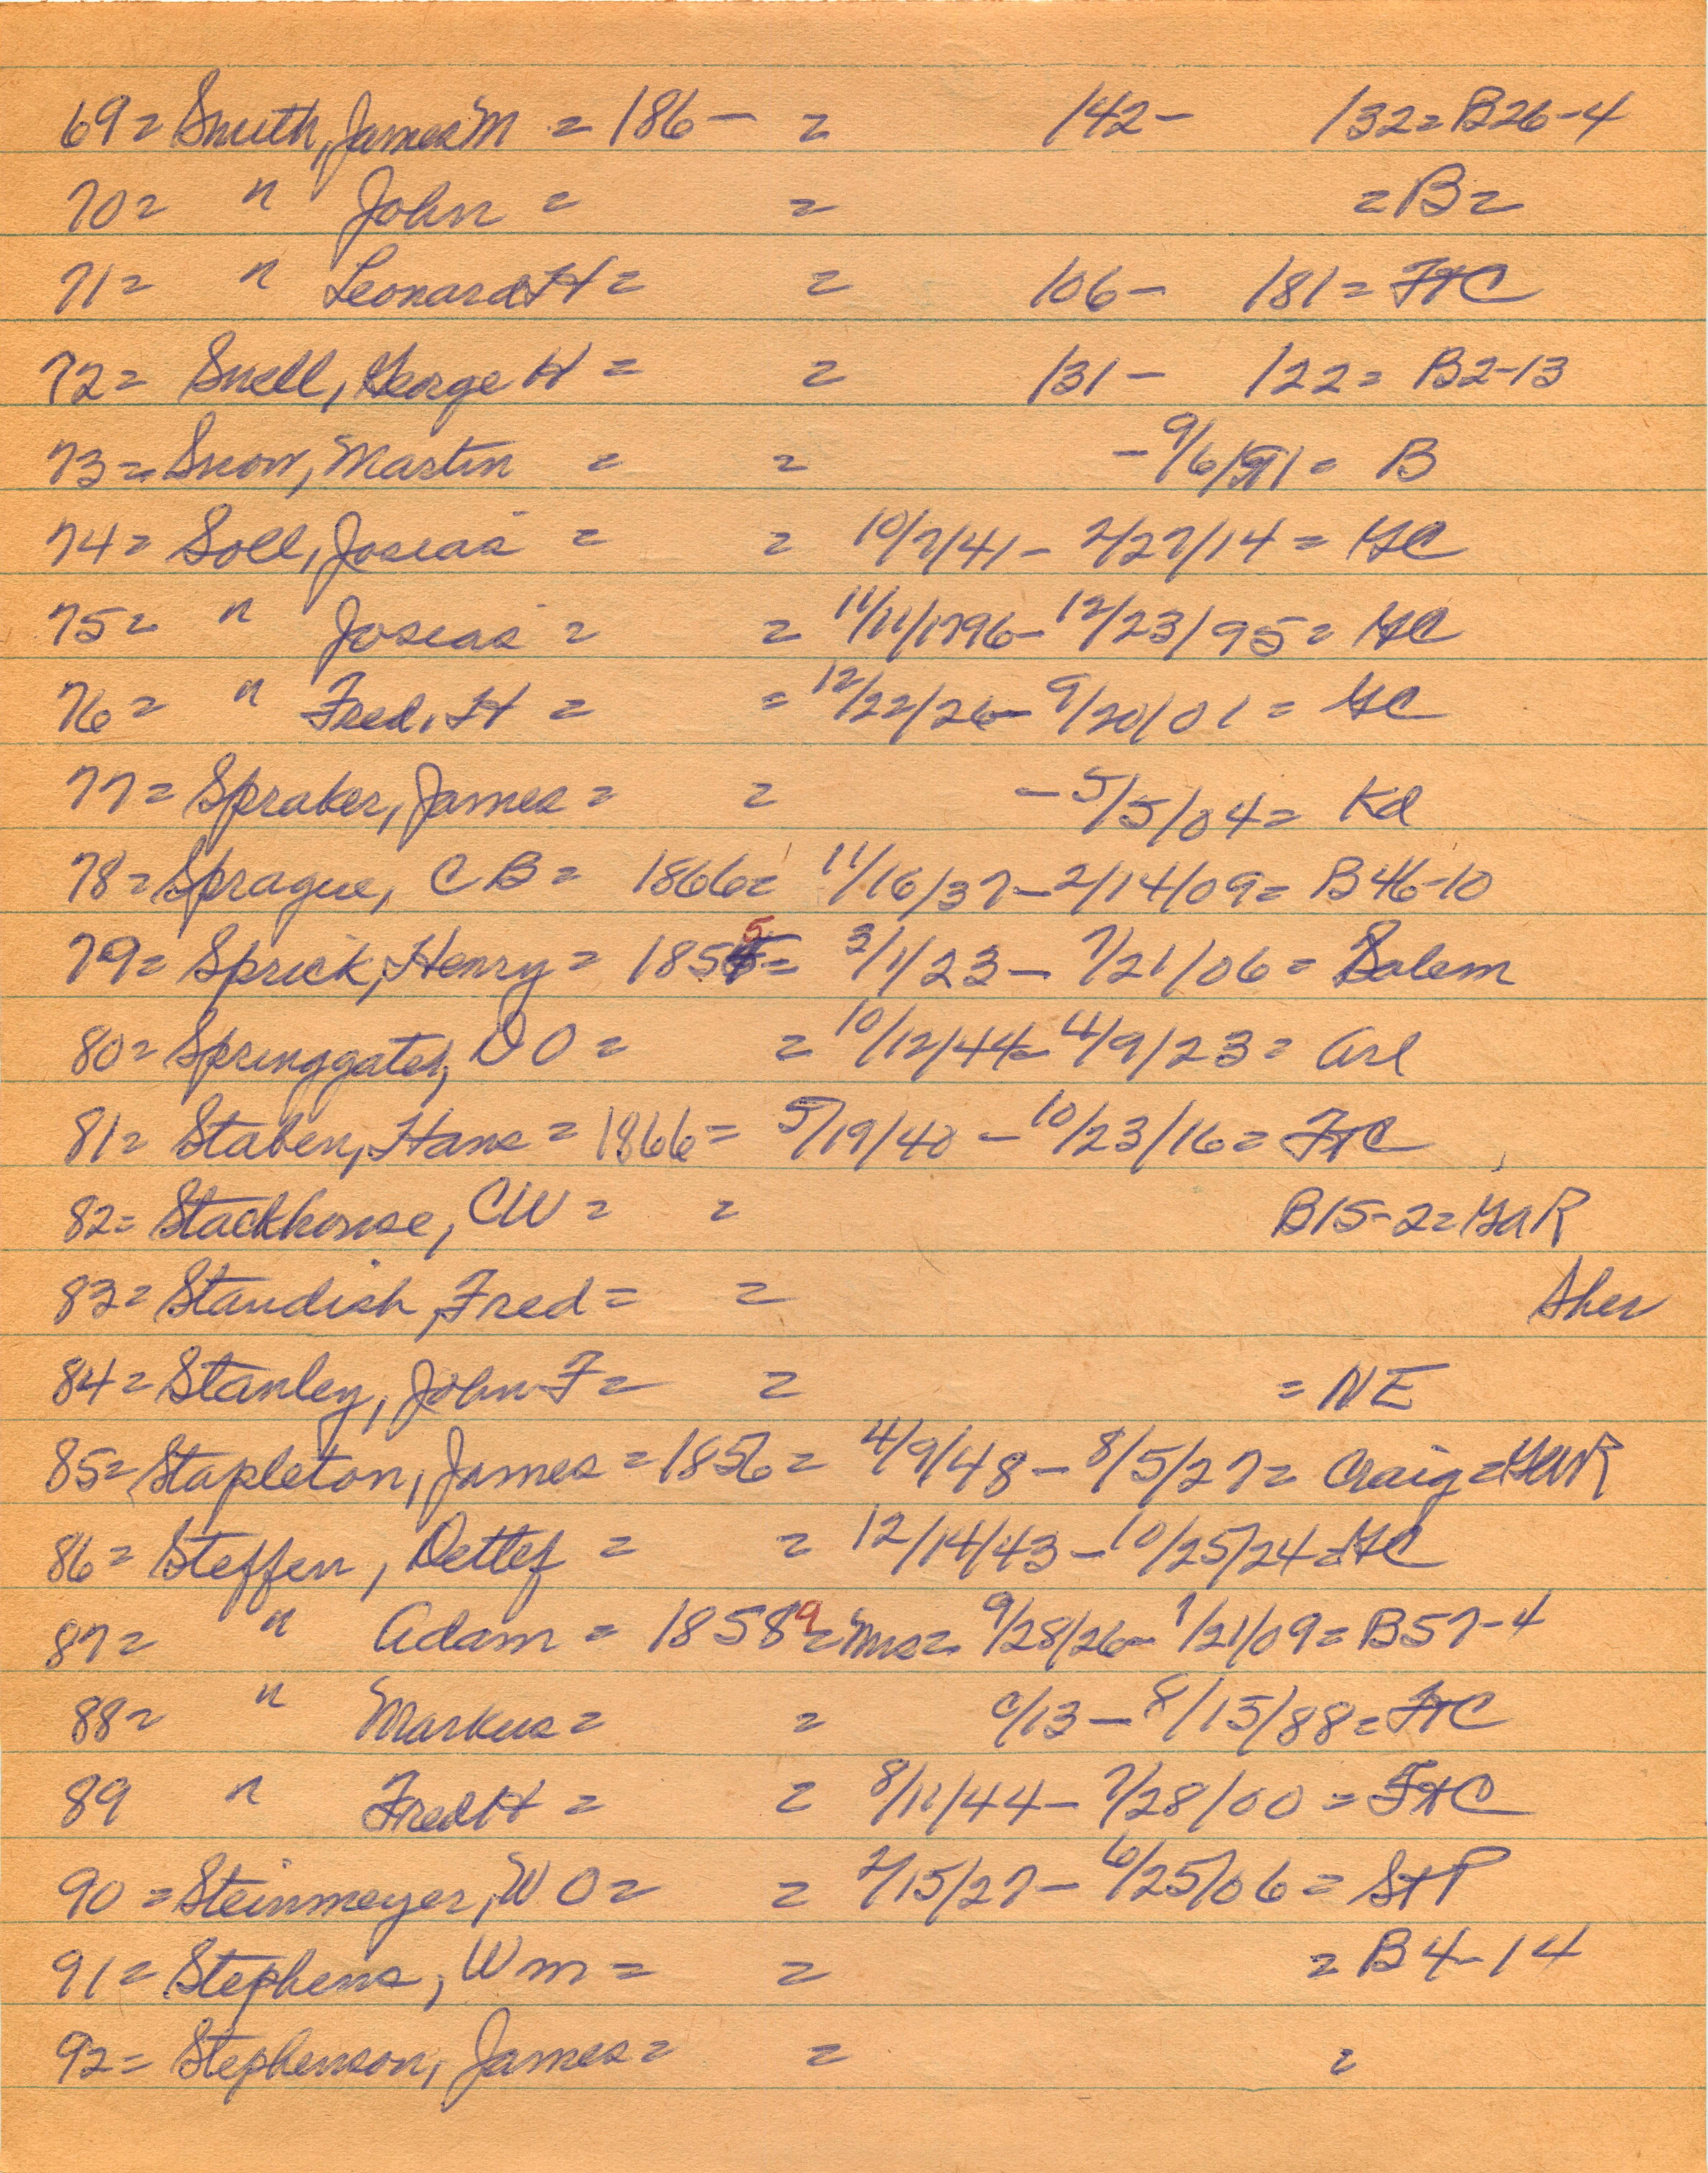 69= Smith, James M = 186- = 142- 132= B26-4
70= " John = = =B=
71= " Leonard H = = 106- 181= FtC
72= Snell, George H = = 131- 122= B2-13
73= Snow, Martin = = -9/6/91= B
74= Soll, Josias = = 10/7/41- 2/27/14= GC
75= " Josias = = 11/11/1796- 12/23/95= GC
76= " Fred. H = = 12/22/26- 9/20/01= GC
77= Spraker, James = = -5/5/04= Kd
78= Sprague, C B = 1866= 11/16/37-2/14/09= B46-10
79= Sprick, Henry = 1855= 3/1/23- 7/21/06= Salem
80= Springgates, D O = = 10/12/44- 4/9/23= Arl
81= Staben, Hans = 1866= 5/19/40 - 10/23/16= FtC
82= Stackhouse, CW = = B15-2= GaR
83= Standish, Fred = = Sher
84= Stanley, John F = = = NE
85= Stapleton, James = 1856= 4/9/48- 8/5/27= Craig= GAR
86= Steffen, Detlef = = 12/14/43 - 10/25/24= GC
87= " Adam = 18589= Ms= 9/28/26- 1/21/09= B57-4
88= " Markus = = c/13 - 8/15/88= FtC
89 " Fred H = = 8/11/44- 7/28/00= FtC
90 = Steinmeyer, W O = = 2/15/27- 6/25/06= StP
91= Stephens, Wm = = = B4-14
92= Stephenson, James = = =